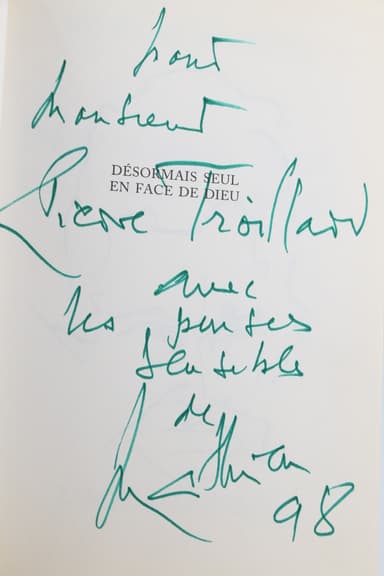 pour
Monsieur
DÉSORMAIS SEUL
EN FACE DE DIEU
Pierre Troillard
avec
les pensées
sensibles
de
Mathieu
98